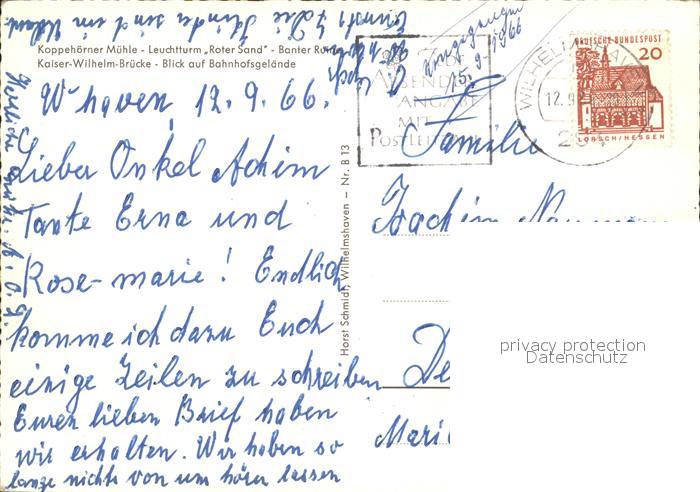 Koppehörner Mühle - Leuchtturm „Roter Sand" - Banter
Kaiser-Wilhelm-Brücke - Blick auf Bahnhofsgelände
W'haven, 12.9.66.
Lieber Onkel Achim
Tante Erna und
Rose-marie! Endlich
komme ich dazu Euch
einige Zeilen zu schreiben
Euren lieben Brief haben
wir erhalten. Wir haben so
lange nichts von uns hören lassen
Die Kinder sind in
Horst Schmidt, Wilhelmshaven - Nr. B 13
eingegangen
15.9.1966
ABSENDER
ANGABE
MIT
12.9
DEUTSCHE BUNDESPOST
20
LORSCH/HESSEN
Familie
Joachim
privacy protection
Datenschutz